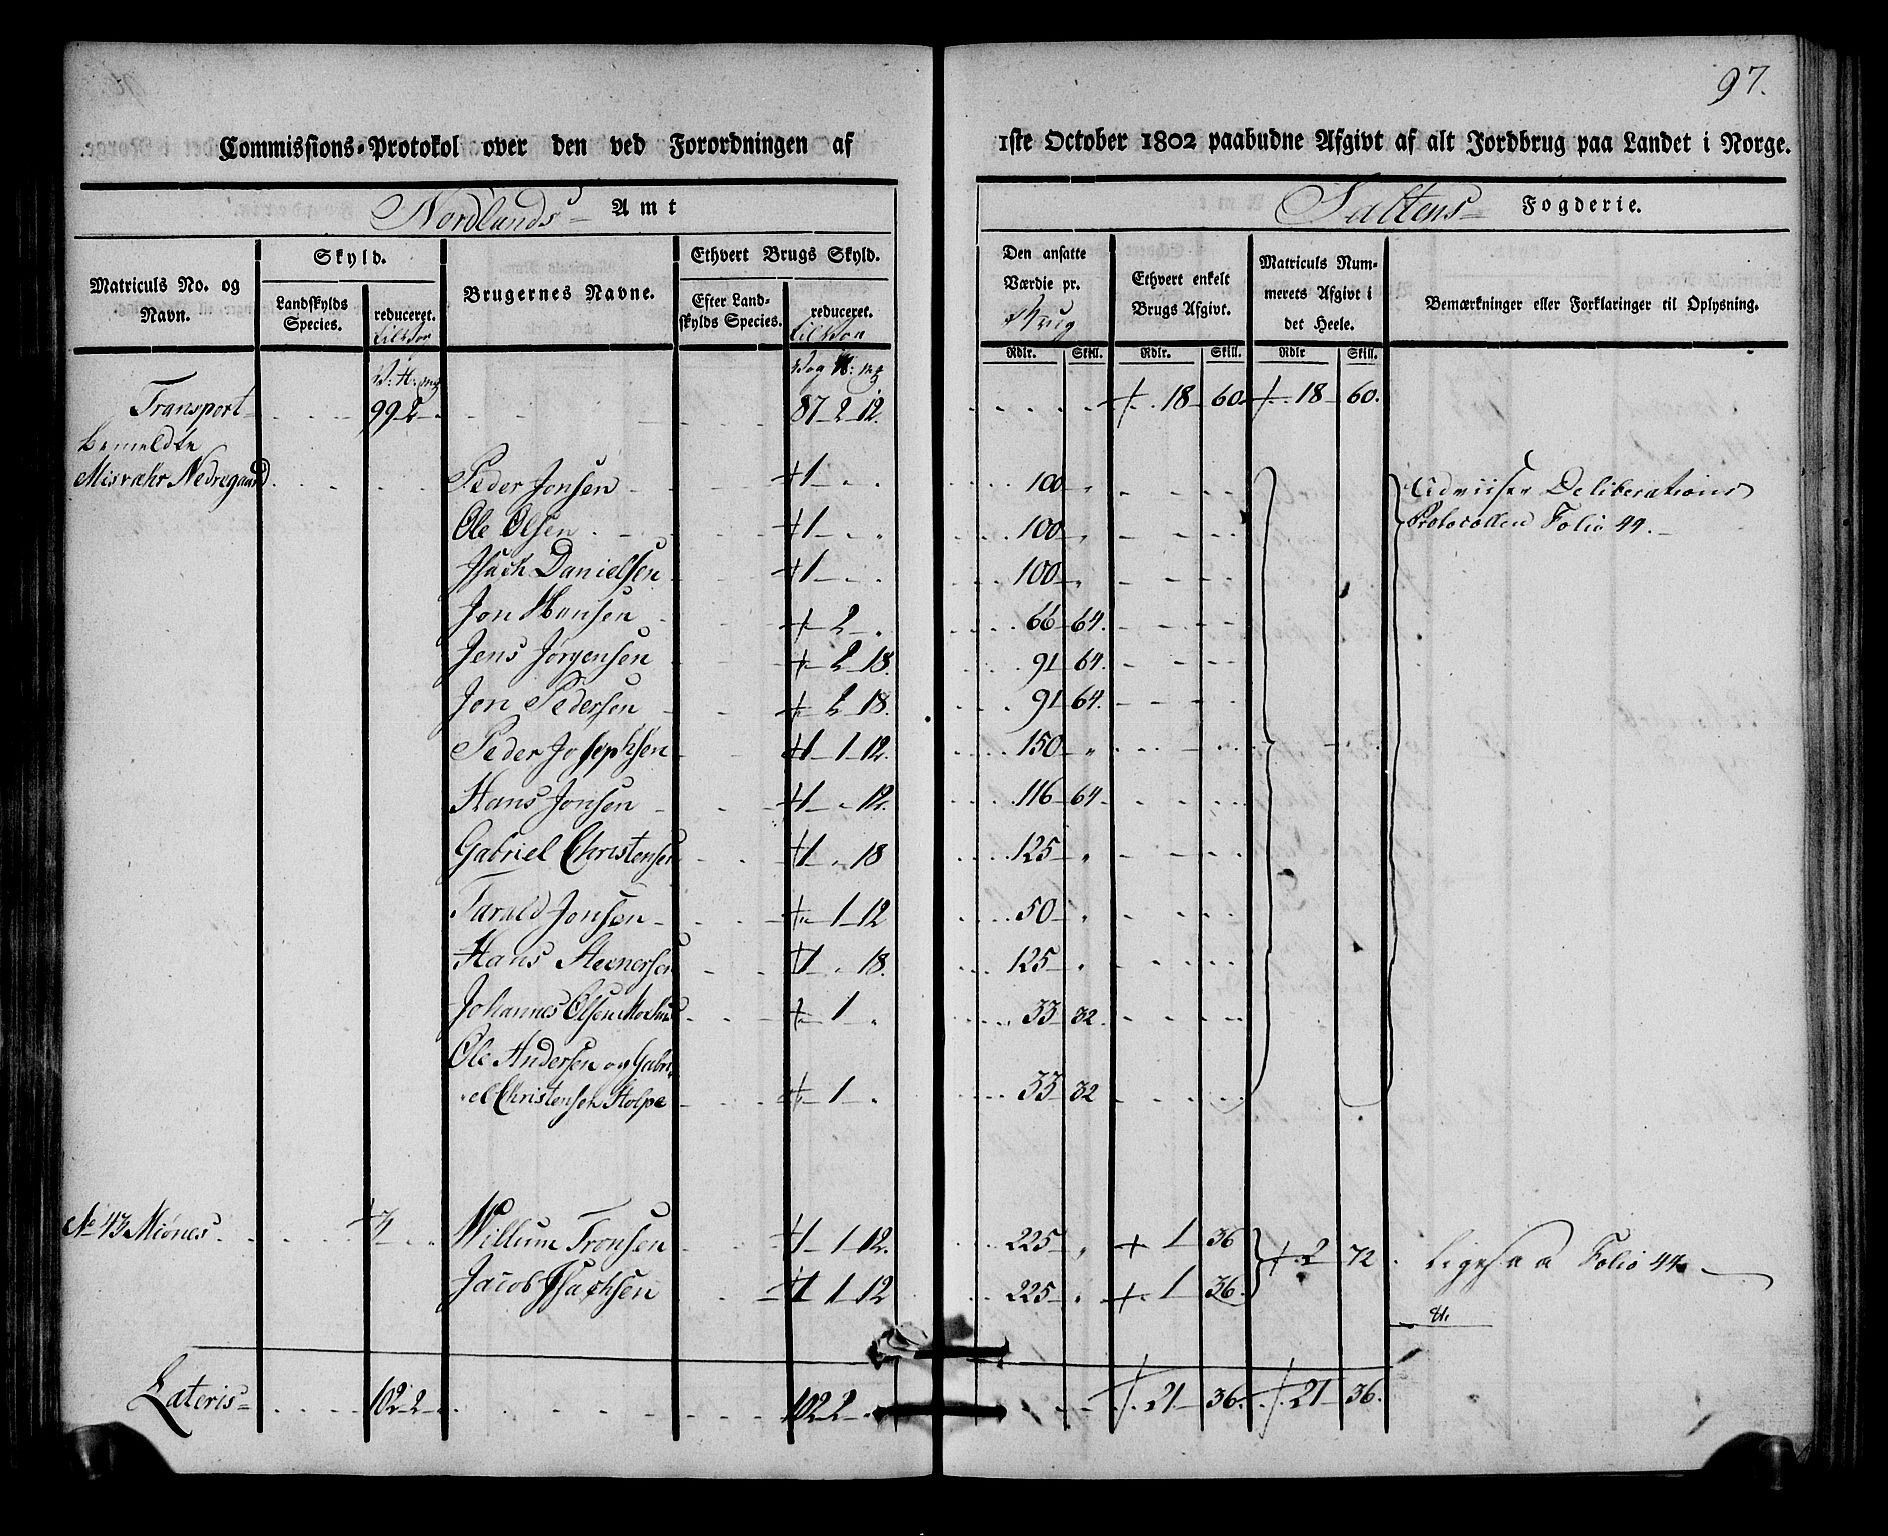 97.
Commissions-Protokol over den ved Forordningen af 1ste October 1802 paabudne Afgivt af alt Jordbrug paa Landet i Norge.
Nordlands Amt Saltens Fogderie.
Matriculs No. og Navn.
Skyld.
Landskylds Species.
reduceret.
Brugernes Navne.
Ethvert Brugs Skyld.
Efter Landskylds Species.
reduceret.
Den ansatte Værdie pr.
Brug
Ethvert enkelt Brugs Afgivt.
Matriculs Nummerets Afgivt i det Heele.
Bemærkninger eller Forklaringer til Oplysning.
Rdlr. Skill. Rdlr. Skill. Rdlr Skill.
Transport 99 2 87 2 12. 18 60. 18 60.
bemeldte
Misvahr Nedregaard Peder Jonsen 1 100 Udviiser Deliberations
Protocollen Folio 44.
Ole Olsen 1 100
Isach Danielsen 1 100
Jon Hansen 2 66 64.
Jens Jørgensen 2 18. 91 64.
Jon Pedersen 2 18. 91 64.
Peder Josephsen 1 1 12. 150
Hans Jonsen 1 12. 116 64
Gabriel Christensen 1 18 125
Tarald Jonsen 1 12 50
Hans Stevnersen 1 18. 125
Johannes Olsen 1 33 32.
Ole Andersen og Gabri
el Christensen 1 33 32
No 43 Miønes 3 Willum Tronsen 1 1 12. 225 1 36 2 72 Ligesaa Folio 44
Jacob Isachsen 1 1 12 225 1 36
Lateris 102 2 102 2 21 36. 21 36.